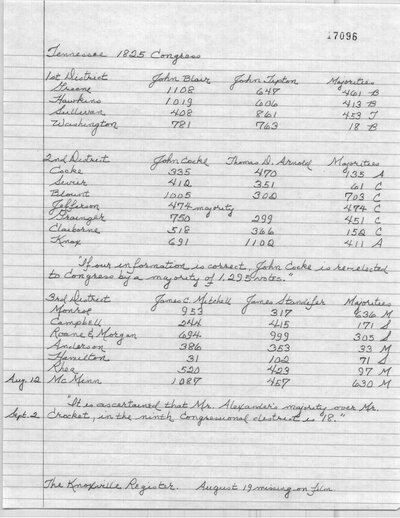 17096
Tennessee 1825 Congress
1st District John Blair John Tipton Majorities
Greene 1108 647 461 B
Hawkins 1019 606 413 B
Sullivan 408 861 453 T
Washington 781 763 18 B
2nd District John Cocke Thomas D. Arnold Majorities
Cocke 335 470 135 A
Sevier 412 351 61 C
Blount 1005 302 703 C
Jefferson 474 majority 474 C
Grainger 750 299 451 C
Claiborne 518 366 152 C
Knox 691 1102 411 A
"If our information is correct, John Cocke is re-elected
to Congress by a majority of 1,295 votes."
3rd District James C. Mitchell James Standifer Majorities
Monroe 953 317 636 M
Campbell 244 415 171 S
Roane & Morgan 694 999 305 S
Anderson 386 353 33 M
Hamilton 31 102 71 S
Rhea 520 423 97 M
Aug. 12 McMinn 1087 457 630 M
"It is ascertained that Mr. Alexander's majority over Mr.
Sept. 2 Crocket, in the ninth Congressional district is "18."
The Knoxville Register. August 19 missing on film